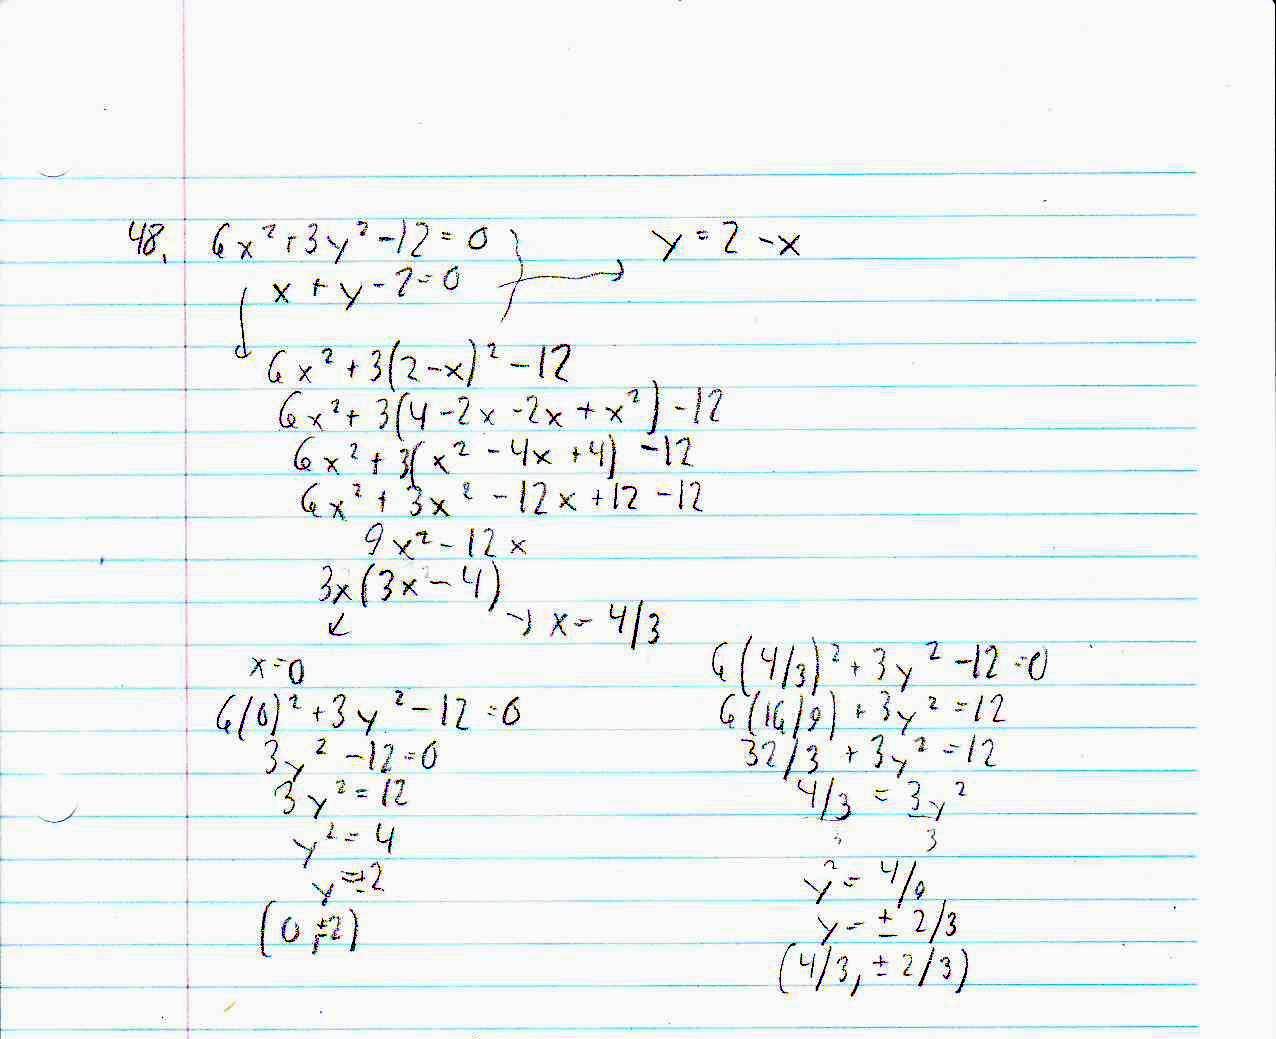 48. 6x² + 3y² - 12 = 0
y = 2 - x
x + y - 2 = 0
6x² + 3(2-x)² - 12
6x² + 3(4 - 2x - 2x + x²) - 12
6x² + 3(x² - 4x + 4) - 12
6x² + 3x² - 12x + 12 - 12
9x² - 12x
3x(3x - 4)
→ x = 4/3
x = 0
6(0)² + 3y² - 12 = 0
3y² - 12 = 0
3y² = 12
y² = 4
y = ±2
(0, ±2)
6(4/3)² + 3y² - 12 = 0
6(16/9) + 3y² = 12
32/3 + 3y² = 12
4/3 = 3y²
3
y² = 4/9
y = ± 2/3
(4/3, ± 2/3)